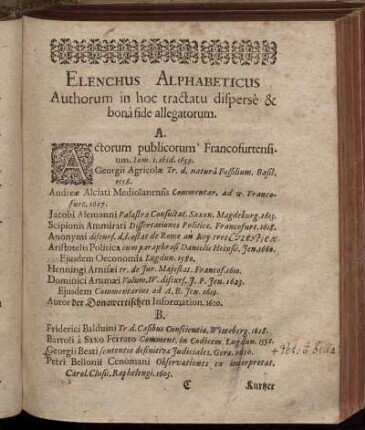 ELENCHUS ALPHABETICUS
Authorum in hoc tractatu dispersè &
bonâ fide allegatorum.
A.
Actorum publicorum Francofurtensi-
um. Tom. 1. ibid. 1659.
Georgii Agricolæ Tr. d. naturâ Fossilium. Basil.
1558.
Andreæ Alciati Mediolanensis Commentar. ad
furt. 1617.
Jacobi Alemanni Palæstra Consultat. Saxon. Magdeburg. 1613.
Scipionis Ammirati Dissertationes Politicæ. Francofurt. 1618.
Anonymi discurs. d. l. estat de Rome au Roy tres
Aristotelis Politica cum paraphrasi Danielis Heinsii. Jen. 1660.
Ejusdem Oeconomia Lugdun. 1580.
Henningi Arnisæi tr. de Jur. Majestat. Francof. 1610.
Dominici Arumæi Volum. IV. discurs. J. P. Jen. 1623.
Ejusdem Commentarius ad A. B. Jen. 1630.
Autor der Donawertischen Information. 1610.
B.
Friderici Balduini Tr. d. Casibus Conscientiæ. Witeberg. 1628.
à Saxo Ferrato Comment. in Codicem. Lugdun. 1552.
Georgii Beati sententiæ definitivæ Judiciales. Gera. 1610.
Petri Bellonii Cenomani Observationes ex interpretat.
Carol. Clusii. Raphelengi. 1605.
C Kurtzer